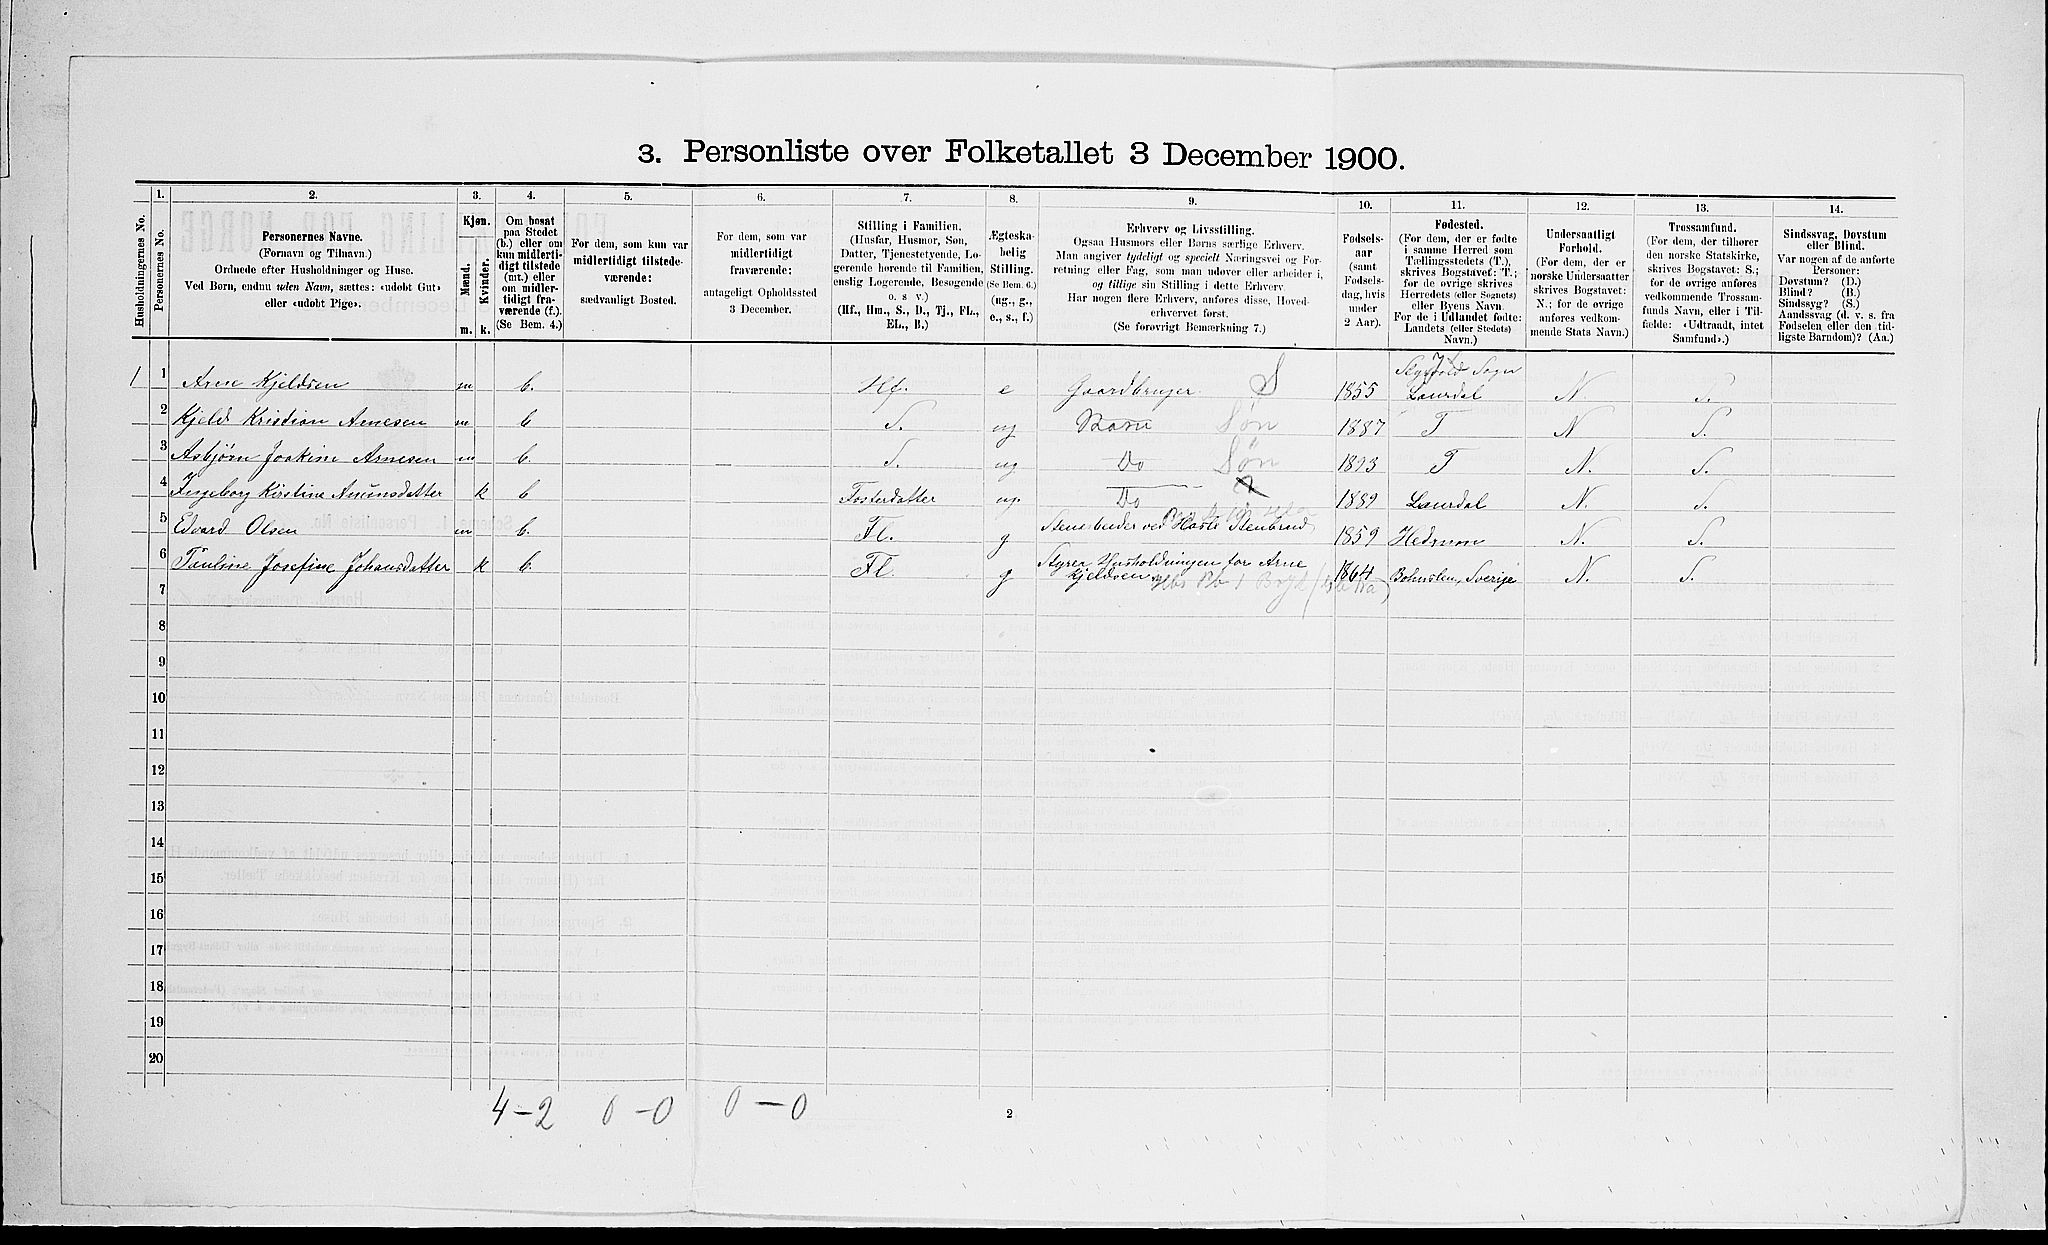 3. Personliste over Folketallet 3 December 1900.
Husholdningernes No.
1.
Personernes No.
2.
Personernes Navne.
(Fornavn og Tilnavn.)
Ordnede efter Husholdninger og Huse.
Ved Børn, endnu uden Navn, sættes: «udøbt Gut»
eller «udøbt Pige».
3.
Kjøn.
Mænd.
Kvinder.
m. k.
4.
Om bosat
paa Stedet
(b.) eller om
kun midlerti-
digt tilstede
(mt.) eller
om midler-
tidigt fra-
værende (f.).
(Se Bem. 4.)
5.
For dem, som kun var
midlertidigt tilstede-
værende:
sædvanligt Bosted.
6.
For dem, som var
midlertidigt
fraværende:
antageligt Opholdssted
3 December.
7.
Stilling i Familien.
(Husfar, Husmor, Søn,
Datter, Tjenestetyende, Lo-
gerende hørende til Familien,
enslig Logerende, Besøgende
o. s. v.)
(Hf., Hm., S., D., Tj., FL.,
EL., B.)
8.
Ægteska-
belig
Stilling.
(Se Bem. 6.)
(ug., g.,
e., s., f.)
9.
Erhverv og Livsstilling.
Ogsaa Husmors eller Børns særlige Erhverv.
Man angiver tydeligt og specielt Næringsvei og For-
retning eller Fag, som man udøver eller arbeider i,
og tillige sin Stilling i dette Erhverv.
Har nogen flere Erhverv, anføres disse, Hoved-
erhvervet først.
(Se forøvrigt Bemærkning 7.)
10.
Fødsels-
aar
(samt
Fødsels-
dag, hvis
under
2 Aar).
11.
Fødested.
(For dem, der er fødte
i samme Herred som
Tællingsstedets (T.),
skrives Bogstavet: T.;
for de øvrige skrives
Herredets (eller Sognets)
eller Byens Navn.
For de i Udlandet fødte:
Landets (eller Stedets)
Navn.)
12.
Undersaatligt
Forhold.
(For dem, der er
norske Undersaatter
skrives Bogstavet:
N.; for de øvrige
anføres vedkom-
mende Stats Navn.)
13.
Trossamfund.
(For dem, der tilhører
den norske Statskirke,
skrives Bogstavet: S.;
for de øvrige anføres
vedkommende Trossam-
funds Navn, eller i Til-
fælde: «Udtraadt, intet
Samfund».)
14.
Sindssvag, Døvstum
eller Blind.
Var nogen af de anførte
Personer:
Døvstum? (D.)
Blind? (B.)
Sindssyg? (S.)
Aandssvag (d. v. s. fra
Fødselen eller den tid-
ligste Barndom)? (Aa.)
1 1 Arne Kjeldsen m b. Hf. e Gaardbruger S 1855 Sogn Laurdal N. S.
2 Kjeld Kristian Arnesen m b S. ug Barn Søn 1887 T N S.
3 Asbjørn Joakim Arnesen m b. S. ug Do Søn 1893 T N. S.
4 Ingeborg Kirstine Amunsdatter k b Fosterdatter ug. Do 1889 Laurdal N. S.
5 Edvard Olsen m b. FL. g Stenarbeider ved Stenbrud 1859 Hedrum N. S.
6 Pauline Josefine Johansdatter k b. FL. g Styrer Husholdningen for Arne
Kjeldsen 1864 Bohuslen, Sverige N. S.
7
8
9
10
11
12
13
14
15
16
17
18
19
20
4 - 2 0 - 0 0 - 0
2